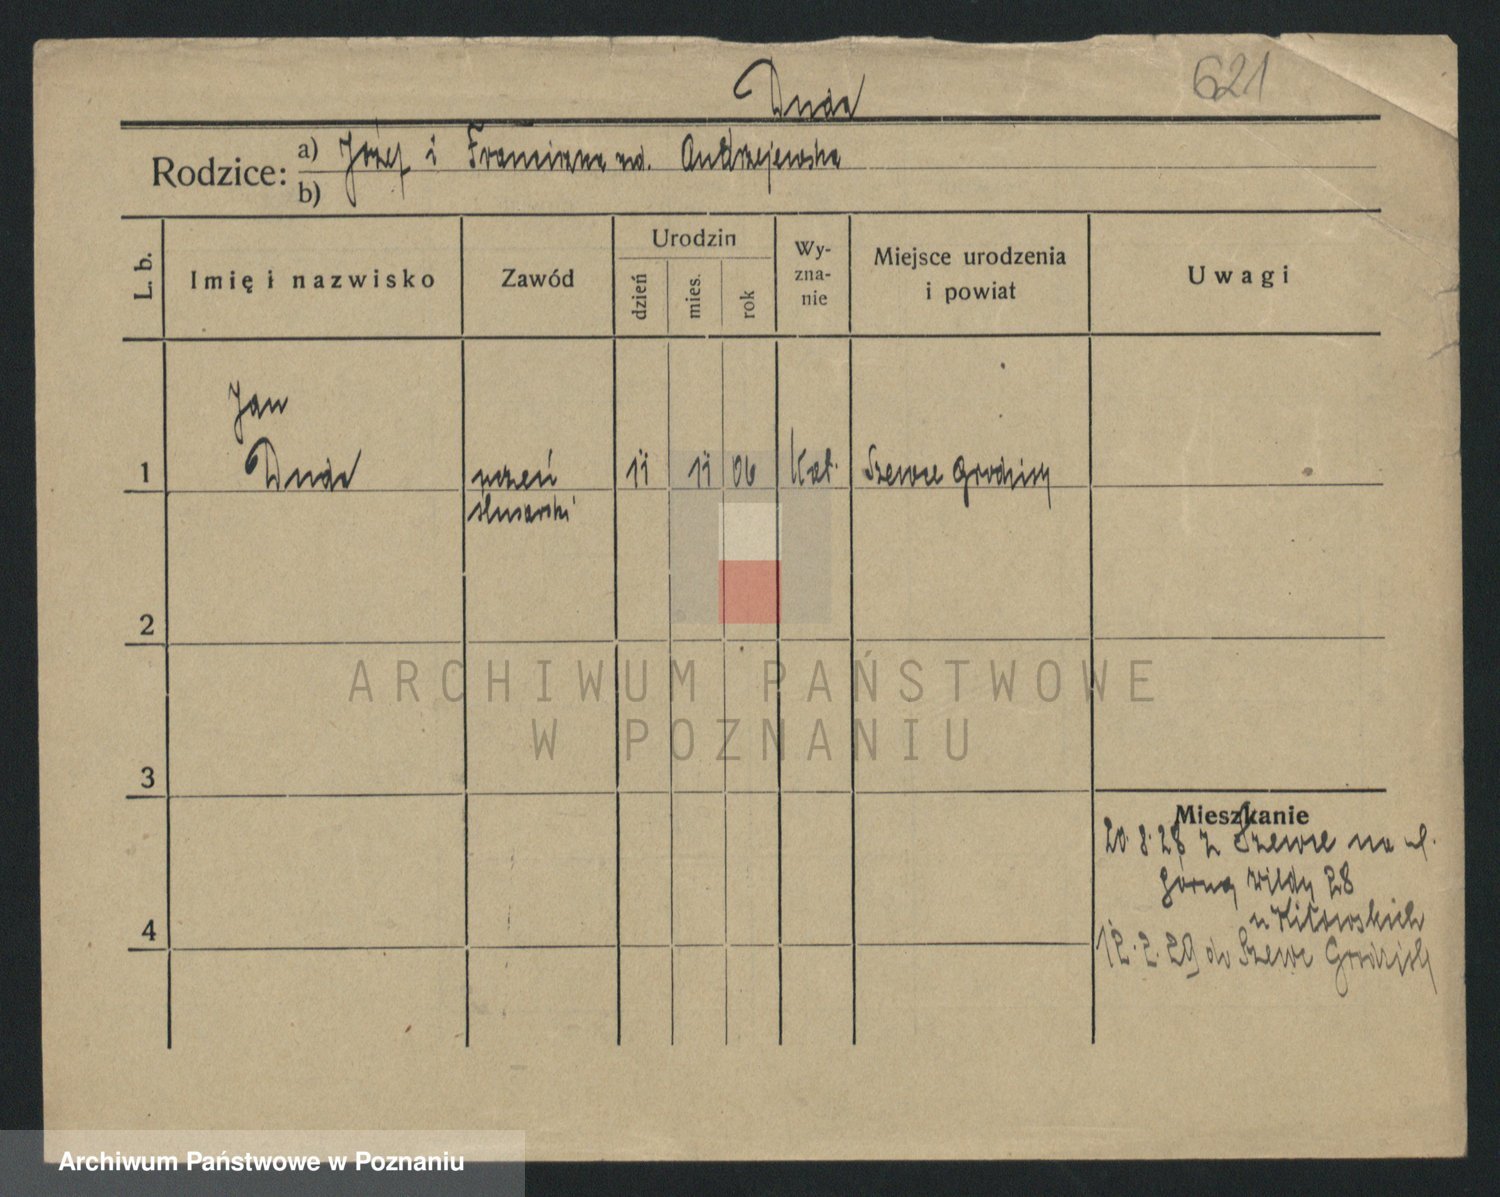 621
Duda
Rodzice: a) Józef i Franciszka ur. Andrzejewska
b)
L. b.
Imię i nazwisko
Zawód
Urodzin
dzień
mies.
rok
Wy-
zna-
nie
Miejsce urodzenia
i powiat
Uwagi
Jan
1 Duda uczeń 11 11 06 Kat. Szewce Grodzisk
ślusarski
2
3
4
Mieszkanie
20.8.28 z Szewce na ul.
Górną Wildę 28
u Kitowskich
12.2.29 do Szewc Grodzisk
ARCHIWUM PAŃSTWOWE
W POZNANIU
Archiwum Państwowe w Poznaniu